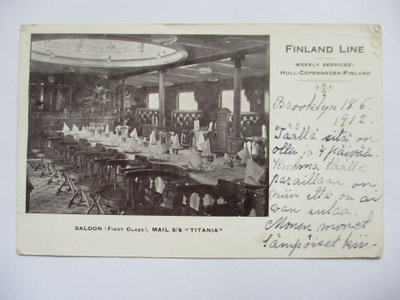 FINLAND LINE
WEEKLY SERVICES:
HULL-COPENHAGEN-FINLAND
Brooklyn 18.6.
1912.
Täällä sitä on
oltu jo 4 päivää
Kuuma täällä
paraillaan on
niin että on ai
van sulaa.
Monen monet
lämpöiset kii-
SALOON (FIRST CLASS), MAIL S/S "TITANIA"